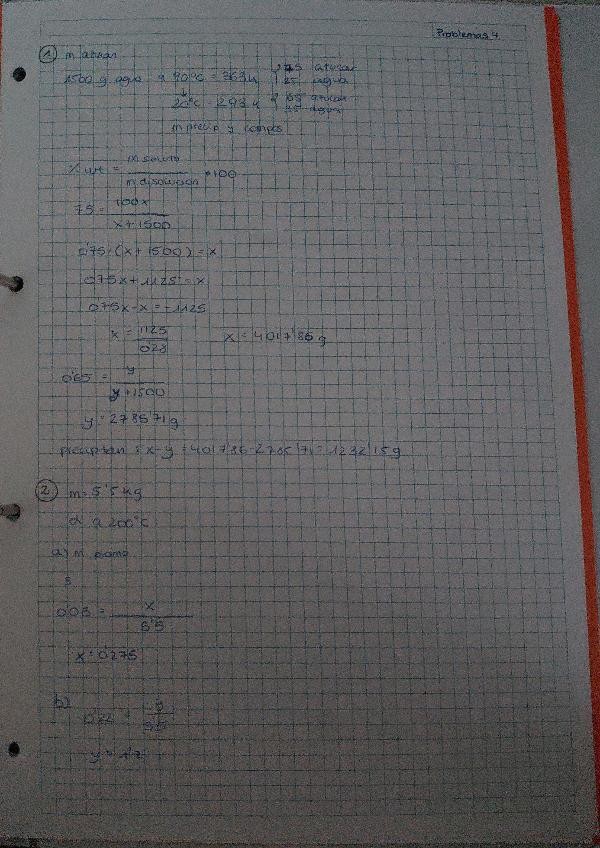 Problemas 4
① m azucar
1500 g agua a 90°C = 363 K { 75 azucar
25 agua
20°C = 293 K { 65 azucar
35 agua
m precip y compos
% wt = m soluto / m disolución · 100
75 = 100x / x+1500
0'75·(x+1500) = x
0'75x + 1125 = x
0'75x - x = -1125
x = 1125 / 0'28 x = 4017'86 g
0'65 = y / y+1500
y = 2785'71 g
precipitan: x-y = 4017'86 - 2785'71 = 1232'15 g
② m = 5'5 kg
α a 200°C
a) m plomo
0'05 = x / 5'5
x = 0'275
b)